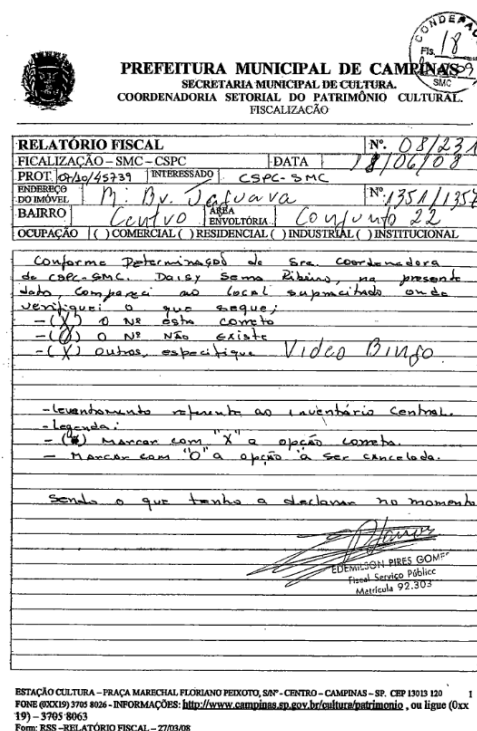 CONDEPAC
Fls. 18
SMC
PREFEITURA MUNICIPAL DE CAMPINAS
SECRETARIA MUNICIPAL DE CULTURA.
COORDENADORIA SETORIAL DO PATRIMÔNIO CULTURAL.
FISCALIZAÇÃO
RELATÓRIO FISCAL Nº. 08/231
FICALIZAÇÃO – SMC – CSPC DATA 18/06/08
PROT. 07/10/45739 INTERESSADO CSPC-SMC
ENDEREÇO DO IMÓVEL Nº. 1351/1357
BAIRRO Centro ÁREA ENVOLTÓRIA Conjunto 22
OCUPAÇÃO ( ) COMERCIAL ( ) RESIDENCIAL ( ) INDUSTRIAL ( ) INSTITUCIONAL
Conforme Determinação da Sra. Coordenadora
da CSPC-SMC. Daisy Serra Ribeiro, na presente
data, compareci ao local supracitado onde
verifiquei o que segue;
- (X) O Nº está correto
- (O) O Nº Não existe
- (X) outros, especifique Video Bingo
- levantamento referente ao inventário Central.
- Legenda:
- Marcar com "X" a opção correta.
- Marcar com "O" a opção a ser cancelada.
Sendo o que tenho a declarar no momento
EDEMILSON PIRES GOMES
Fiscal Serviço Público
Matrícula 92.303
ESTAÇÃO CULTURA – PRAÇA MARECHAL FLORIANO PEIXOTO, S/Nº - CENTRO – CAMPINAS – SP. CEP 13013 120 1
FONE (0XX19) 3705 8026 - INFORMAÇÕES: http://www.campinas.sp.gov.br/cultura/patrimonio , ou ligue (0xx
19) – 3705 8063
Form: RSS –RELATÓRIO FISCAL – 27/03/08